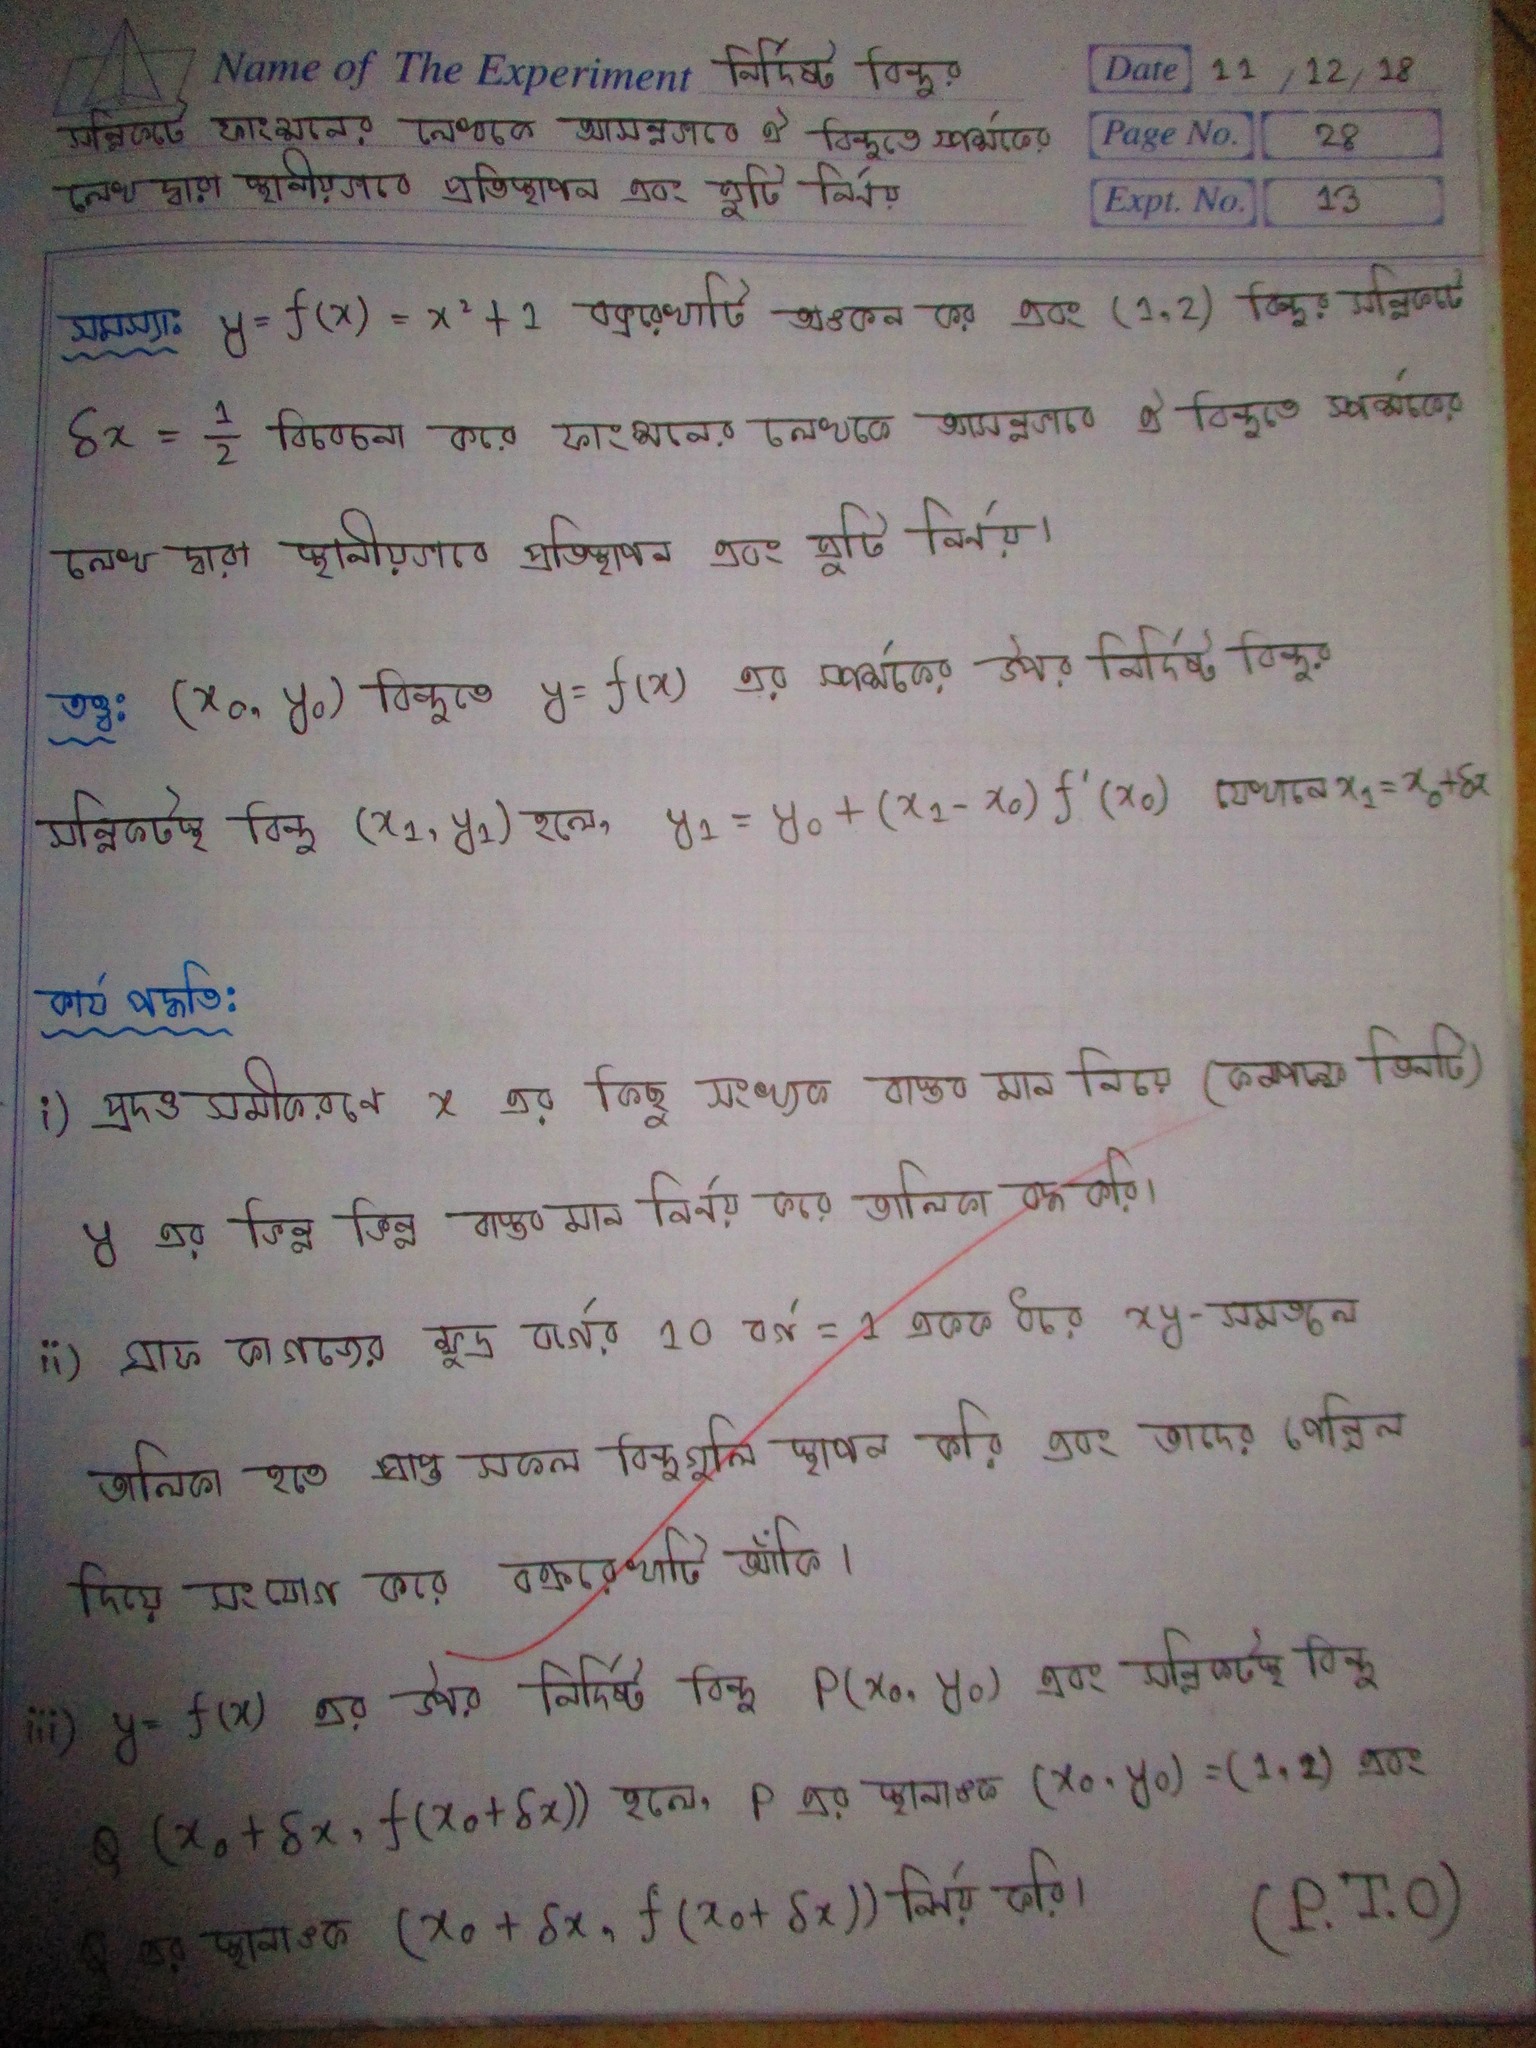 Name of The Experiment নির্দিষ্ট বিন্দুর
Date 11 / 12 / 18
সন্নিকটে ফাংশনের লেখকে আসন্নভাবে ঐ বিন্দুতে স্পর্শকের
Page No. 28
লেখ দ্বারা স্থানীয়ভাবে প্রতিস্থাপন এবং ত্রুটি নির্ণয়
Expt. No. 13
সমস্যা: y = f(x) = x² + 1 বক্ররেখাটি অংকন কর এবং (1, 2) বিন্দুর সন্নিকটে
δx = 1/2 বিবেচনা করে ফাংশনের লেখকে আসন্নভাবে ঐ বিন্দুতে স্পর্শকের
লেখ দ্বারা স্থানীয়ভাবে প্রতিস্থাপন এবং ত্রুটি নির্ণয়।
তত্ত্ব: (x₀, y₀) বিন্দুতে y = f(x) এর স্পর্শকের উপর নির্দিষ্ট বিন্দুর
সন্নিকটস্থ বিন্দু (x₁, y₁) হলে, y₁ = y₀ + (x₁ - x₀) f'(x₀) যেখানে x₁ = x₀ + δx
কার্য পদ্ধতি:
i) প্রদত্ত সমীকরণে x এর কিছু সংখ্যক বাস্তব মান নিয়ে (কমপক্ষে তিনটি)
y এর ভিন্ন ভিন্ন বাস্তব মান নির্ণয় করে তালিকা বদ্ধ করি।
ii) গ্রাফ কাগজের ক্ষুদ্র বর্গের 10 বর্গ = 1 একক ধরে xy-সমতলে
তালিকা হতে প্রাপ্ত সকল বিন্দুগুলি স্থাপন করি এবং তাদের পেন্সিল
দিয়ে সংযোগ করে বক্ররেখাটি আঁকি।
iii) y = f(x) এর উপর নির্দিষ্ট বিন্দু P(x₀, y₀) এবং সন্নিকটস্থ বিন্দু
Q (x₀ + δx, f(x₀ + δx)) হলে, P এর স্থানাংক (x₀, y₀) = (1, 2) এবং
Q এর স্থানাংক (x₀ + δx, f(x₀ + δx)) নির্ণয় করি।
(P.T.O)